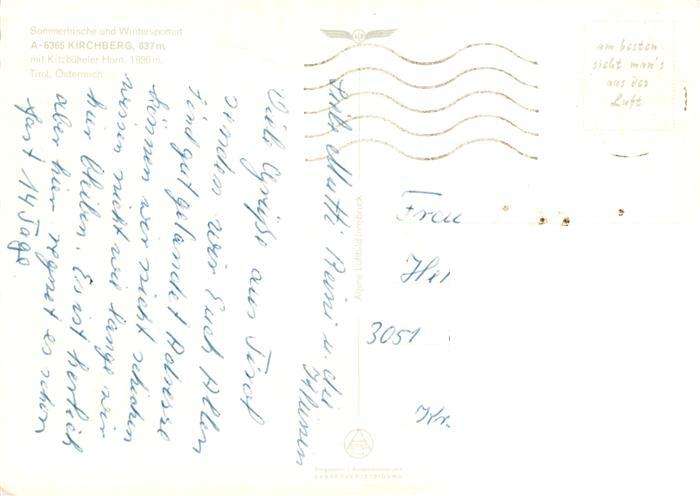 Sommerfrische und Wintersportort
A-6365 KIRCHBERG, 837 m,
mit Kitzbüheler Horn, 1996 m,
Tirol, Österreich
am besten
sieht man's
aus der
Luft
Liebe Mutti Reini u. die
Kleinen
Viele Grüße aus Tirol
senden wir Euch Allen
Sind gut gelandet Adresse
können wir nicht schicken
wissen nicht wie lange wir
hier bleiben. Es ist herrlich
aber hier regnet es schon
fast 14 Tage.
Alpine Luftbild Innsbruck
Frau
Hei
3051
Kr.